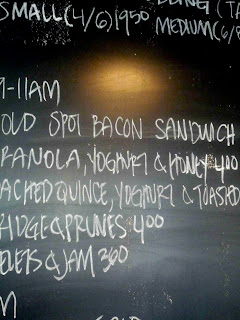 SMALL (4/6) 1950
MEDIUM (6/8
9-11AM
OLD SPOT BACON SANDWICH
RANOLA, YOGHURT & HONEY 400
ACHED QUINCE, YOGHURT & TOASTED
RIDGE & PRUNES 400
& JAM 360
M